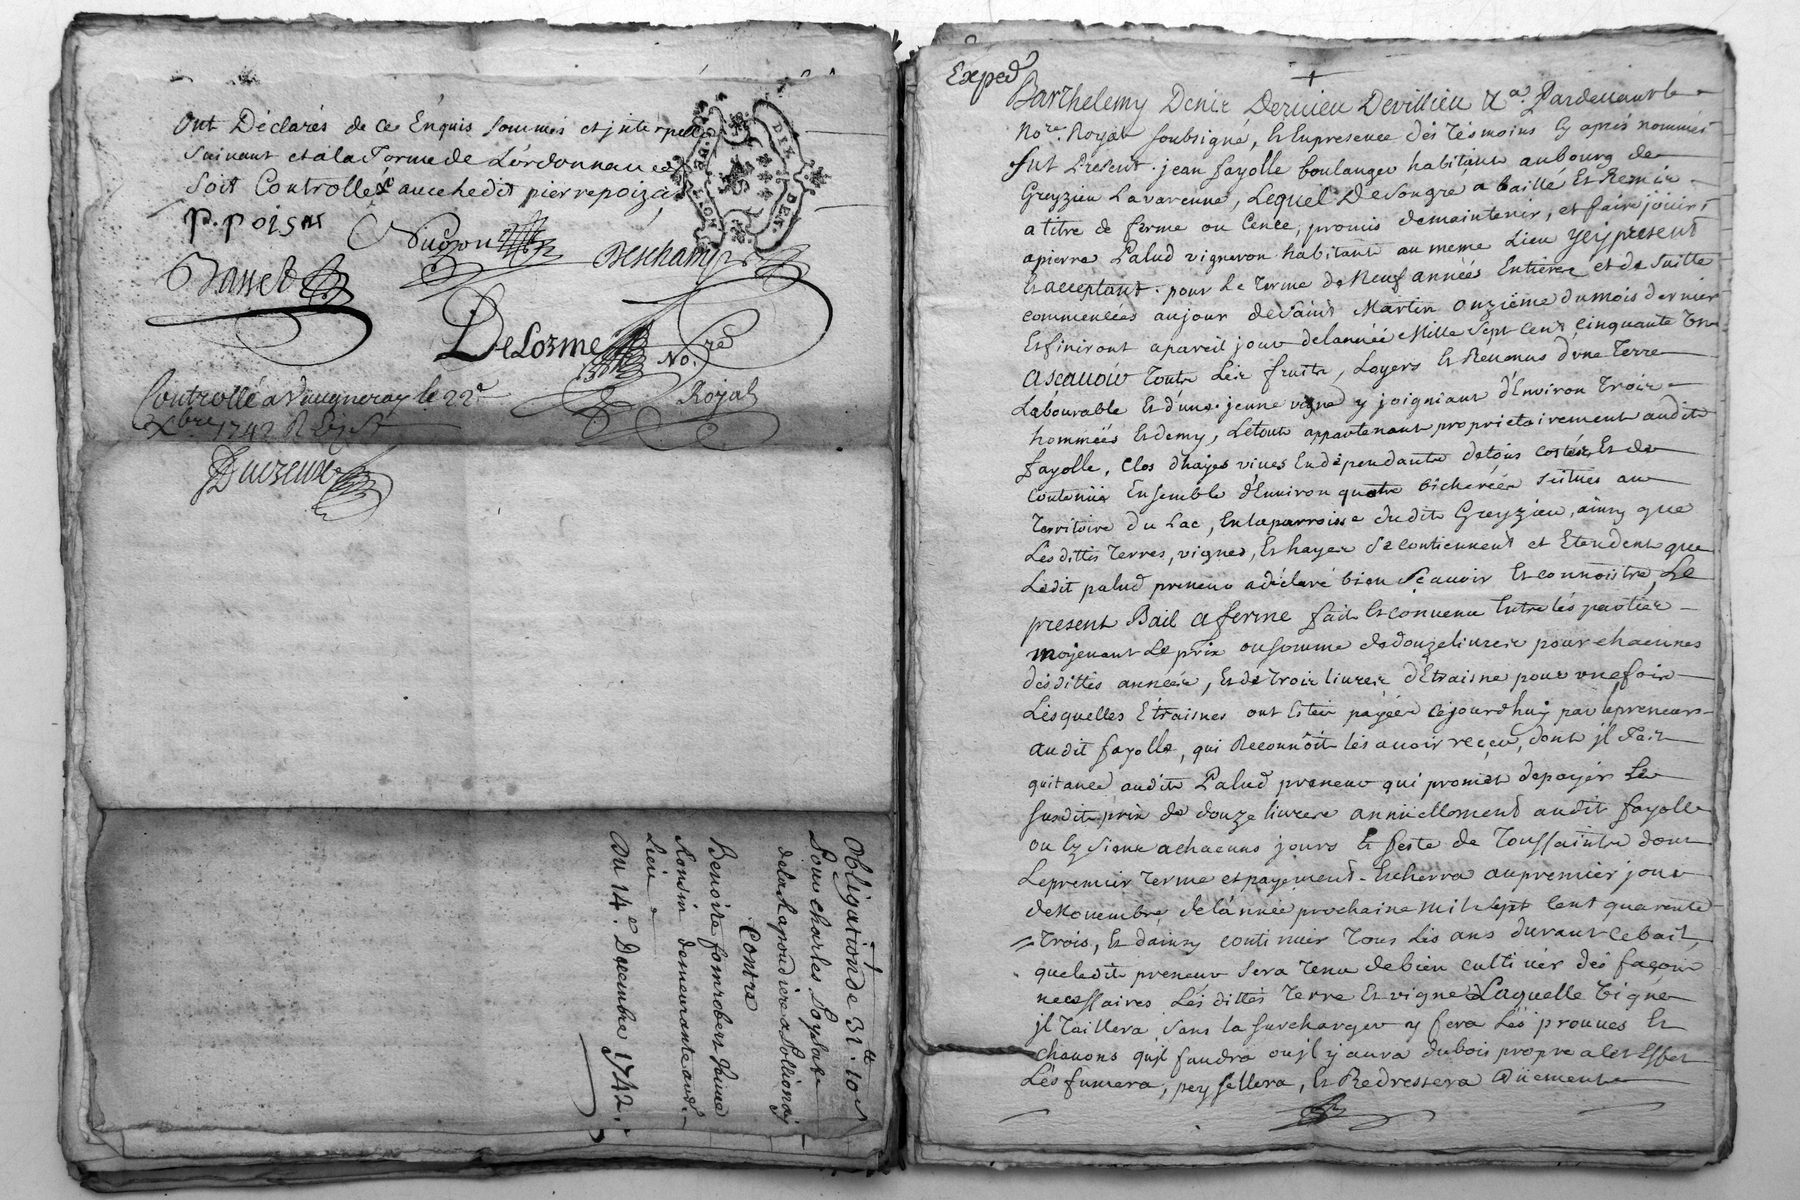 ont Déclarés de ce Enquis sommés et jnterpellé
suivant et a la forme de L'ordonnance
soit Controllé avec ledit pierre poizat
P. poisat
Nugon
Basset
Deschamps
DeLorme
No.re
Royal
Controllé a Vaugneray le 22.e
Xbre 1742 R
Ducreux
Obligation de 31.tt 10s
Pour charles Loysat
Contre
Benoitte fomrobert veuve
Ronsin demeurante aud.
Lieu
Du 14.e Decembre 1742.
Exped
Barthelemy Denis Dervieu Devillieu
No.re Royal soubsigné, Et En presence dés tésmoins Cy aprés nommés
fut Present. jean fayolle boulanger habitant au bourg de
Greyzieu Lavarenne, Lequel De Son gré a baillé Et Remis
a titre de ferme ou Cense, promis de maintenir, et faire jouir
a pierre Palud vigneron habitant au meme Lieu jcy present
Et acceptant. pour Le terme de Neuf années Entières et de suitte
commencées au jour de Saint Martin onzième du mois dernier
Et finiront a pareil jour de L'année Mille Sept Cent Cinquante Un
Ascavoir Touts Les fruits, Loyers Et Revenus d'une Terre
Labourable Et d'une jeune vigne y joigniant d'Environ trois
hommées Et demy, Le tout appartenant proprietairement audit
fayolle, Clos d'hayes vives En dépendants de tous costés, Et de
Contenüe Ensemble d'Environ quatre bicherées scitués au
Territoire du Lac, En la parroisse dudit Greyzieu, ainsy que
Lesdittes Terres, vignes, Et hayes Se contiennent et Etendent que
Ledit palud preneur a déclaré bien Scavoir Et connoistre, Le
present Bail a ferme fait Et convenu Entre lés parties
moyenant Le prix ou somme de douze livres pour chacunes
dés dittes années, Et de trois livres d'Étraisne pour une fois
Lésquelles Étraisnes ont Esté payées cejourd'huy par le preneur
audit fayolle, qui Reconnoît lés avoir reçeu, dont jl fait
quitance audit Palud preneur qui promet de payer Le
susdit prix de douze livres annüellement audit fayolle
ou És siens a chacuns jours Et feste de Toussaints dont
Le premier terme et payement Echerra au premier jour
de Novembre de l'année prochaine mil sept Cent quarente
trois, Et d'ainsy continuer tous Lés ans durant ce bail,
que ledit preneur sera tenu de bien cultiver dés façons
necessaires Lés dittes Terre Et vigne Laquelle vigne
jl Taillera sans la surcharger y fera Lés prouves Et
chavons qu'jl faudra ou jl y aura du bois propre a cet Effet
Lés fumera, peyssellera, Et Redressera düement